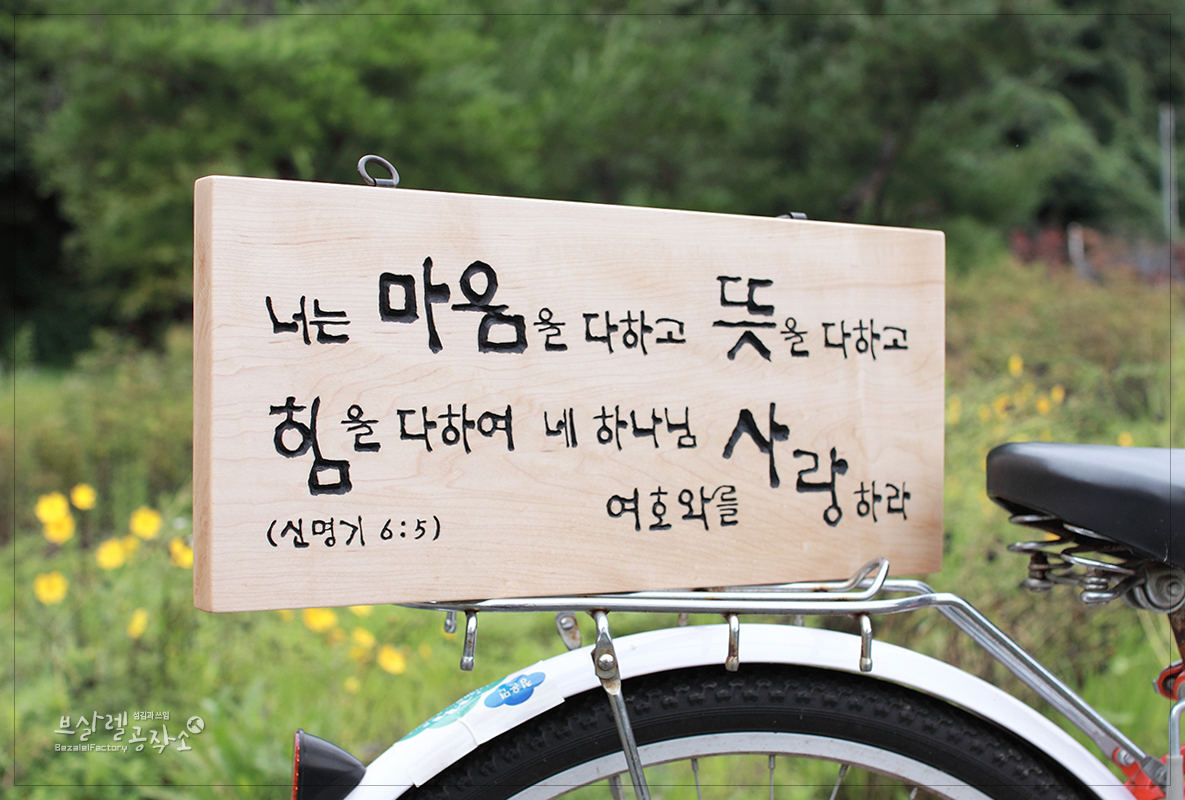 너는 마음을 다하고 뜻을 다하고
힘을 다하여 네 하나님 사랑하라
여호와를
(신명기 6:5)
브살렐 섬김과 쓰임
공작소
BezalelFactory